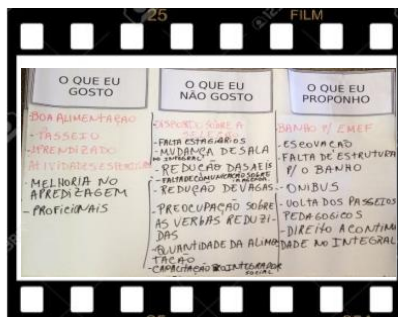 25 FILM
O QUE EU
GOSTO
- BOA ALIMENTAÇÃO
- PASSEIO
- APRENDIZADO
ATIVIDADES
MELHORIA NO
APREDIZAGEM
- PROFICINAIS
O QUE EU
NÃO GOSTO
SOBRE A
- FALTA ESTAGIÁRIOS
- MUDANÇA DE SALA
NO INTEGRAL
- REDUÇÃO DAS AEIS
- FALTA DE COMUNICAÇÃO SOBRE
- REDUÇÃO DE VAGAS
- PREOCUPAÇÃO SOBRE
AS VERBAS REDUZI-
DAS
- QUANTIDADE DA ALIMEN
TAÇÃO
- CAPACITAÇÃO INTEGRADOR
SOCIAL
O QUE EU
PROPONHO
BANHO P/ EMEF
- ESCOVAÇÃO
- FALTA DE ESTRUTURA
P/ O BANHO
- ONIBUS
- VOLTA DOS PASSEIOS
PEDAGOGICOS
- DIREITO A CONTINUI
DADE NO INTEGRAL